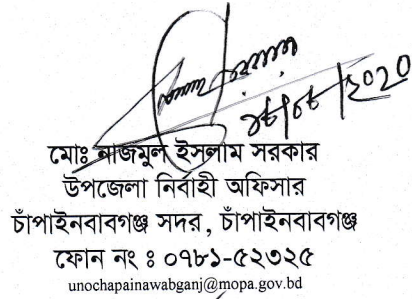 মোঃ নাজমুল ইসলাম সরকার
উপজেলা নির্বাহী অফিসার
চাঁপাইনবাবগঞ্জ সদর, চাঁপাইনবাবগঞ্জ
ফোন নং ঃ ০৭৮১-৫২৩২৫
unochapainawabganj@mopa.gov.bd